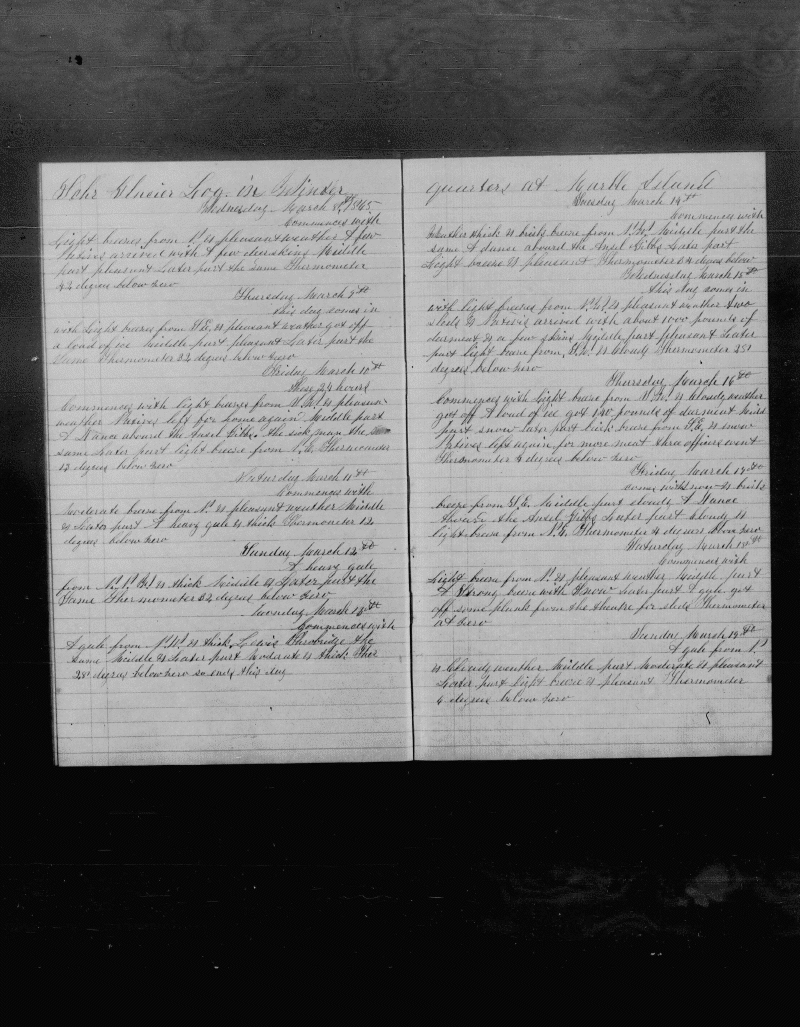 Glacier Log in Winter
Wednesday March 8th 1865
Commences with
light breezes from N. & pleasant weather A few
Natives arrived with A few deerskins Middle
part pleasant Later part the same Thermometer
42 degrees below zero
Thursday March 9th
this day comes in
with light breezes from & pleasant weather got off
a load of ice Middle part pleasant Later part the
Same Thermometer 32 degrees below zero
Friday March 10th
These 24 hours
Commences with light breezes from & pleasant
weather Natives left for home again Middle part
A Dance aboard the Ansel Gibbs the sick man the
same Later part light breeze from Thermometer
13 degrees below zero
Saturday March 11th
Commences with
Moderate breeze from N. & pleasant weather Middle
& Later part A heavy gale & thick Thermometer 12
degrees below zero
Sunday March 12th
A heavy gale
from & thick Middle & Later part the
Same Thermometer 32 degrees below zero
Monday March 13th
Commences with
A gale from & thick Lewis the
same Middle & Later part Moderate & thick Ther
28 degrees below zero so ends this day
quarters at Marble Island
Tuesday March 14th
Commences with
Weather thick & brisk breeze from Middle part the
same A dance aboard the Ansel Gibbs Later part
light breeze & pleasant Thermometer 34 degrees below
Wednesday March 15th
this day comes in
with light breezes from & pleasant weather two
sleds & Natives arrived with about 1000 pounds of
& a few skins Middle part pleasant Later
part light breeze from & cloudy Thermometer 25
degrees below zero
Thursday March 16th
Commences with light breeze from & cloudy weather
got off A load of ice got 140 pounds of Midd
part snow later part brisk breeze from & snow
Natives left again for more meat three officers went
Thermometer 4 degrees below zero
Friday March 17th
comes with snow & brisk
breeze from Middle part cloudy A Dance
the Ansel Gibbs Later part cloudy &
light breeze from Thermometer 4 degrees above zero
Saturday March 18th
Commences with
light breeze from N. & pleasant weather Middle part
A Strong breeze with Snow Later part A gale got
off some plank from the theatre for sleds Thermometer
at zero
Sunday March 19th
A gale from N.
& Cloudy weather Middle part Moderate & pleasant
Later part light breeze & pleasant Thermometer
6 degrees below zero